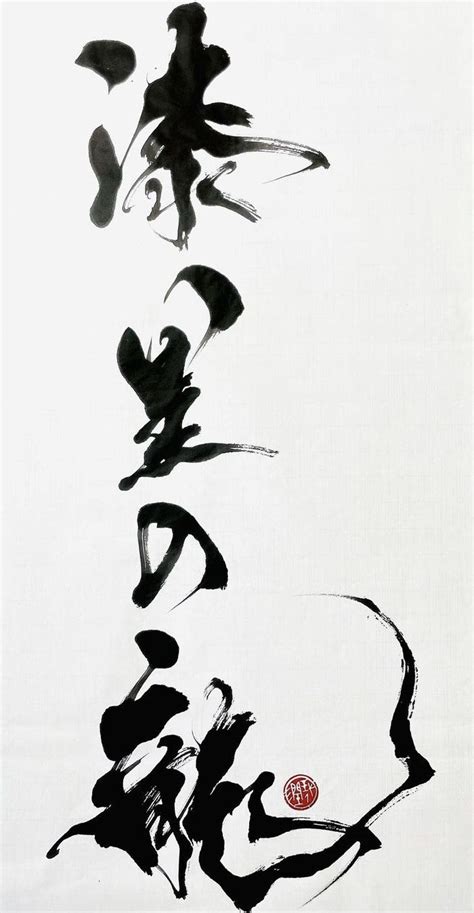 漆黒の龍